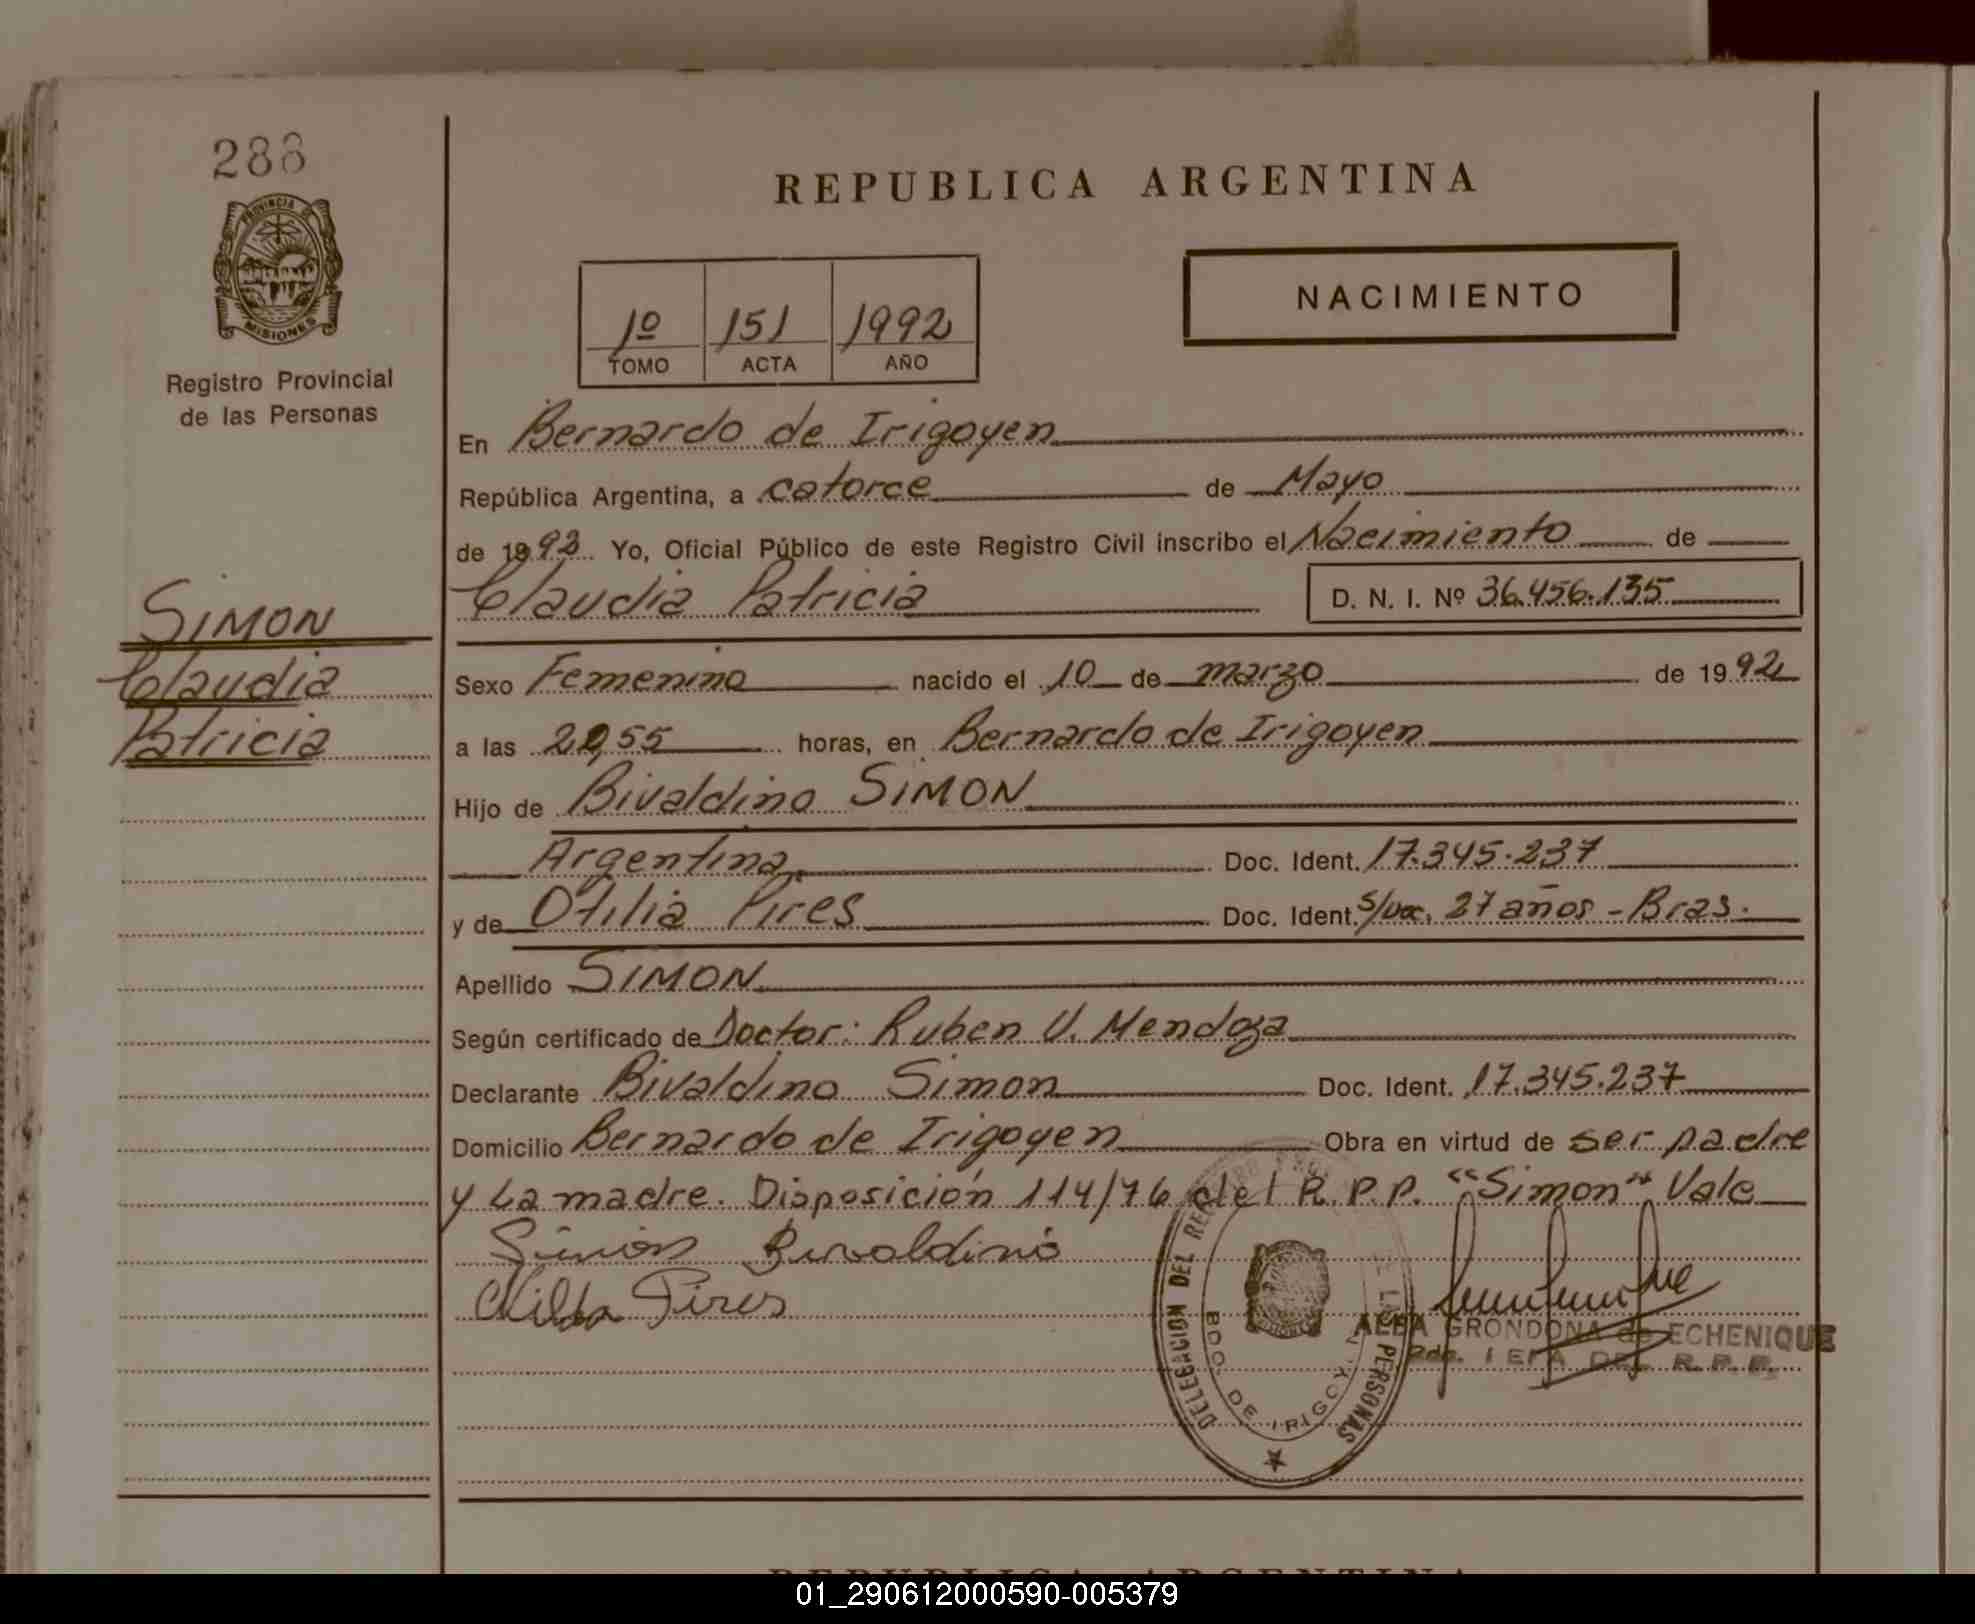 288
PROVINCIA DE
MISIONES
Registro Provincial
de las Personas
SIMON
Claudia
Patricia
REPUBLICA ARGENTINA
1º 151 1992
TOMO ACTA AÑO
NACIMIENTO
En Bernardo de Irigoyen
República Argentina, a catorce de Mayo
de 1992. Yo, Oficial Público de este Registro Civil inscribo el Nacimiento de
Claudia Patricia D. N. I. Nº 36.456.135
Sexo Femenino nacido el 10 de marzo de 1992
a las 20,55 horas, en Bernardo de Irigoyen
Hijo de Bivaldino SIMON
Argentina Doc. Ident. 17.345.237
y de Otilia Pires Doc. Ident. S/Doc. 27 años - Bras.
Apellido SIMON
Según certificado de Doctor: Ruben V. Mendoza
Declarante Bivaldino Simon Doc. Ident. 17.345.237
Domicilio Bernardo de Irigoyen Obra en virtud de ser padre
y La madre. Disposición 114/76 del R.P.P. "Simon" Vale
Simon Bivaldino
Pires
DELEGACION DEL REGISTRO DE LAS PERSONAS
BDO. DE IRIGOYEN
ALBA GRONDONA de ECHENIQUE
2da. JEFA DEL R.P.P.
REPUBLICA ARGENTINA
01_290612000590-005379